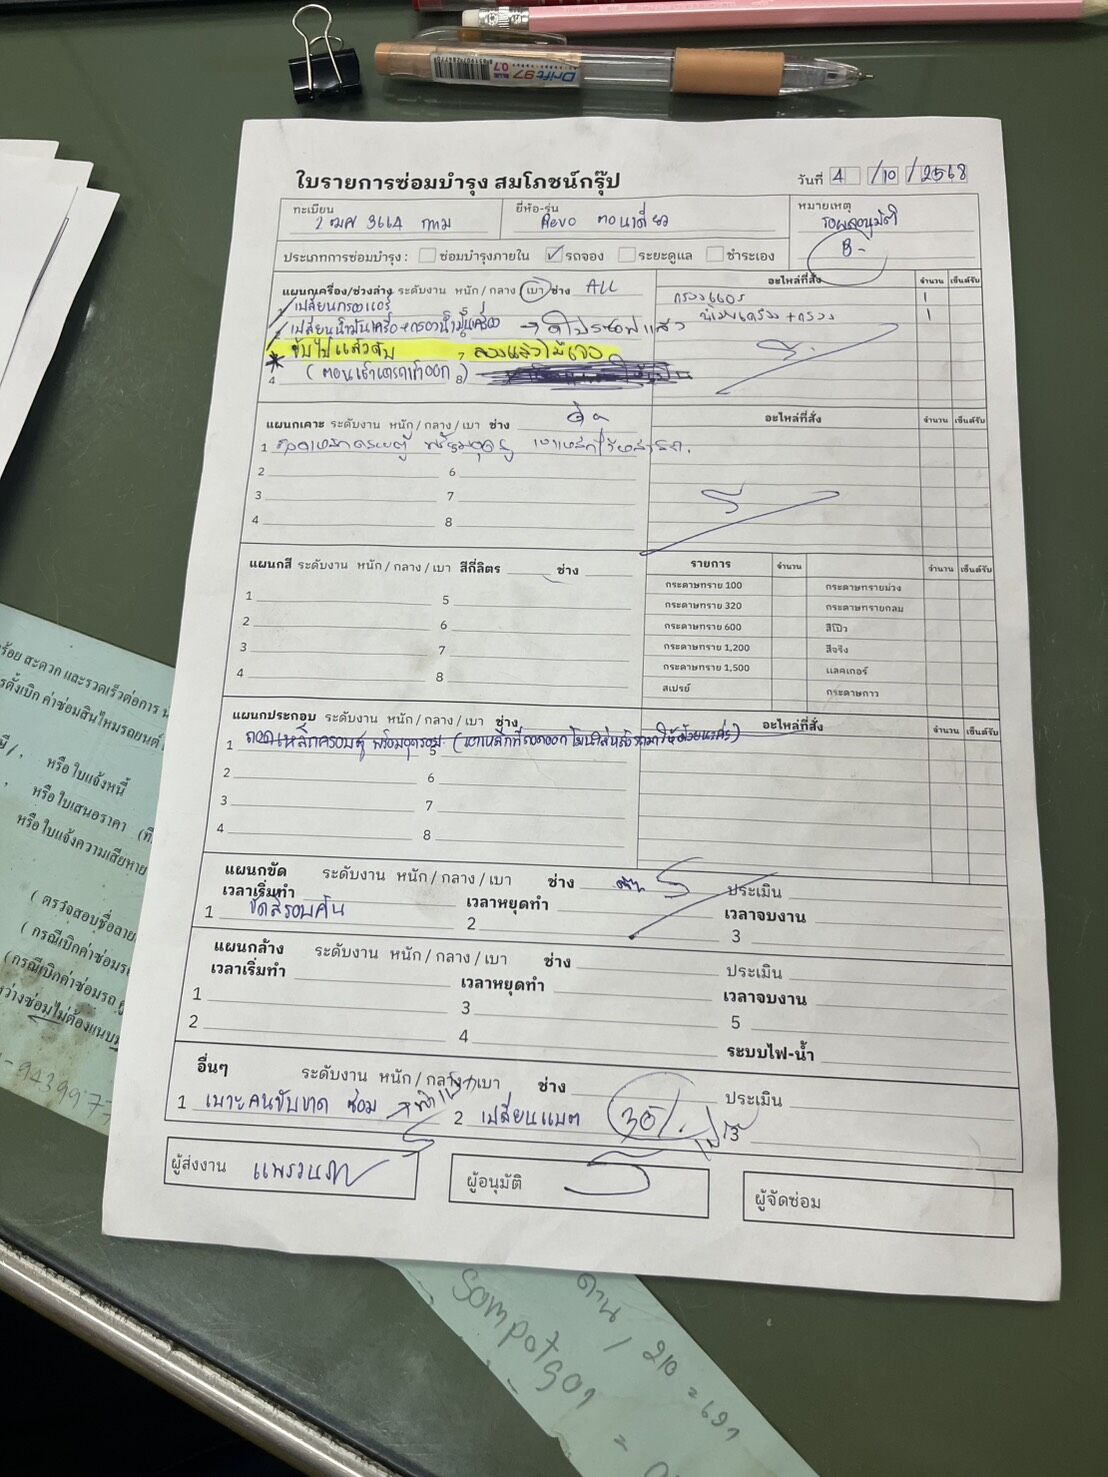 Drift 97
BLUE
0.7
ใบรายการซ่อมบำรุง สมโภชน์กรุ๊ป
วันที่ 4 /10 /2568
ทะเบียน 2 ฒศ 3664 กทม
ยี่ห้อ-รุ่น Revo ตอนเดียว
หมายเหตุ
รอผลอนุมัติ
B-
ประเภทการซ่อมบำรุง : ซ่อมบำรุงภายใน ✓ รถจอง ระยะดูแล ชำระเอง
แผนกเครื่อง/ช่วงล่าง ระดับงาน หนัก / กลาง / เบา ช่าง ALL
อะไหล่ที่สั่ง จำนวน เซ็นต์รับ
เปลี่ยนกรองแอร์
กรองแอร์ 1
เปลี่ยนน้ำมันเครื่อง+กรองน้ำมันเครื่อง →
น้ำมันเครื่อง+กรอง 1
ขับไปแล้วดับ 7 ลองแล้วไม่เจอ
4 8
แผนกเคาะ ระดับงาน หนัก / กลาง / เบา ช่าง
อะไหล่ที่สั่ง จำนวน เซ็นต์รับ
1
2 6
3 7
4 8
แผนกสี ระดับงาน หนัก / กลาง / เบา สีกี่ลิตร ช่าง
รายการ จำนวน จำนวน เซ็นต์รับ
กระดาษทราย 100 กระดาษทรายม่วง
กระดาษทราย 320 กระดาษทรายกลม
กระดาษทราย 600 สีโป๊ว
กระดาษทราย 1,200 สีจริง
กระดาษทราย 1,500 แลคเกอร์
สเปรย์ กระดาษกาว
1 5
2 6
3 7
4 8
แผนกประกอบ ระดับงาน หนัก / กลาง / เบา ช่าง
อะไหล่ที่สั่ง จำนวน เซ็นต์รับ
1 ถอดเหล็กครอบตู้
2 6
3 7
4 8
แผนกขัด ระดับงาน หนัก / กลาง / เบา ช่าง ประเมิน
เวลาเริ่มทำ เวลาหยุดทำ เวลาจบงาน
1 ขัดสีรอบคัน 2 3
แผนกล้าง ระดับงาน หนัก / กลาง / เบา ช่าง ประเมิน
เวลาเริ่มทำ เวลาหยุดทำ เวลาจบงาน
1 3 5
2 4 ระบบไฟ-น้ำ
อื่นๆ ระดับงาน หนัก / กลาง / เบา ช่าง ประเมิน
1 เบาะคนขับขาด ซ่อม 2 เปลี่ยนแบต 30%. 3
ผู้ส่งงาน
ผู้อนุมัติ
ผู้จัดซ่อม
หรือใบแจ้งหนี้
หรือใบเสนอราคา
หรือใบแจ้งความเสียหาย
Sompotgo